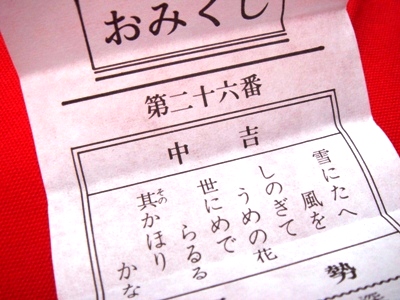 おみくじ
第二十六番
中吉
雪にたへ
風を
しのぎて
うめの花
世にめで
らるる
其かほり
その
かな
勢